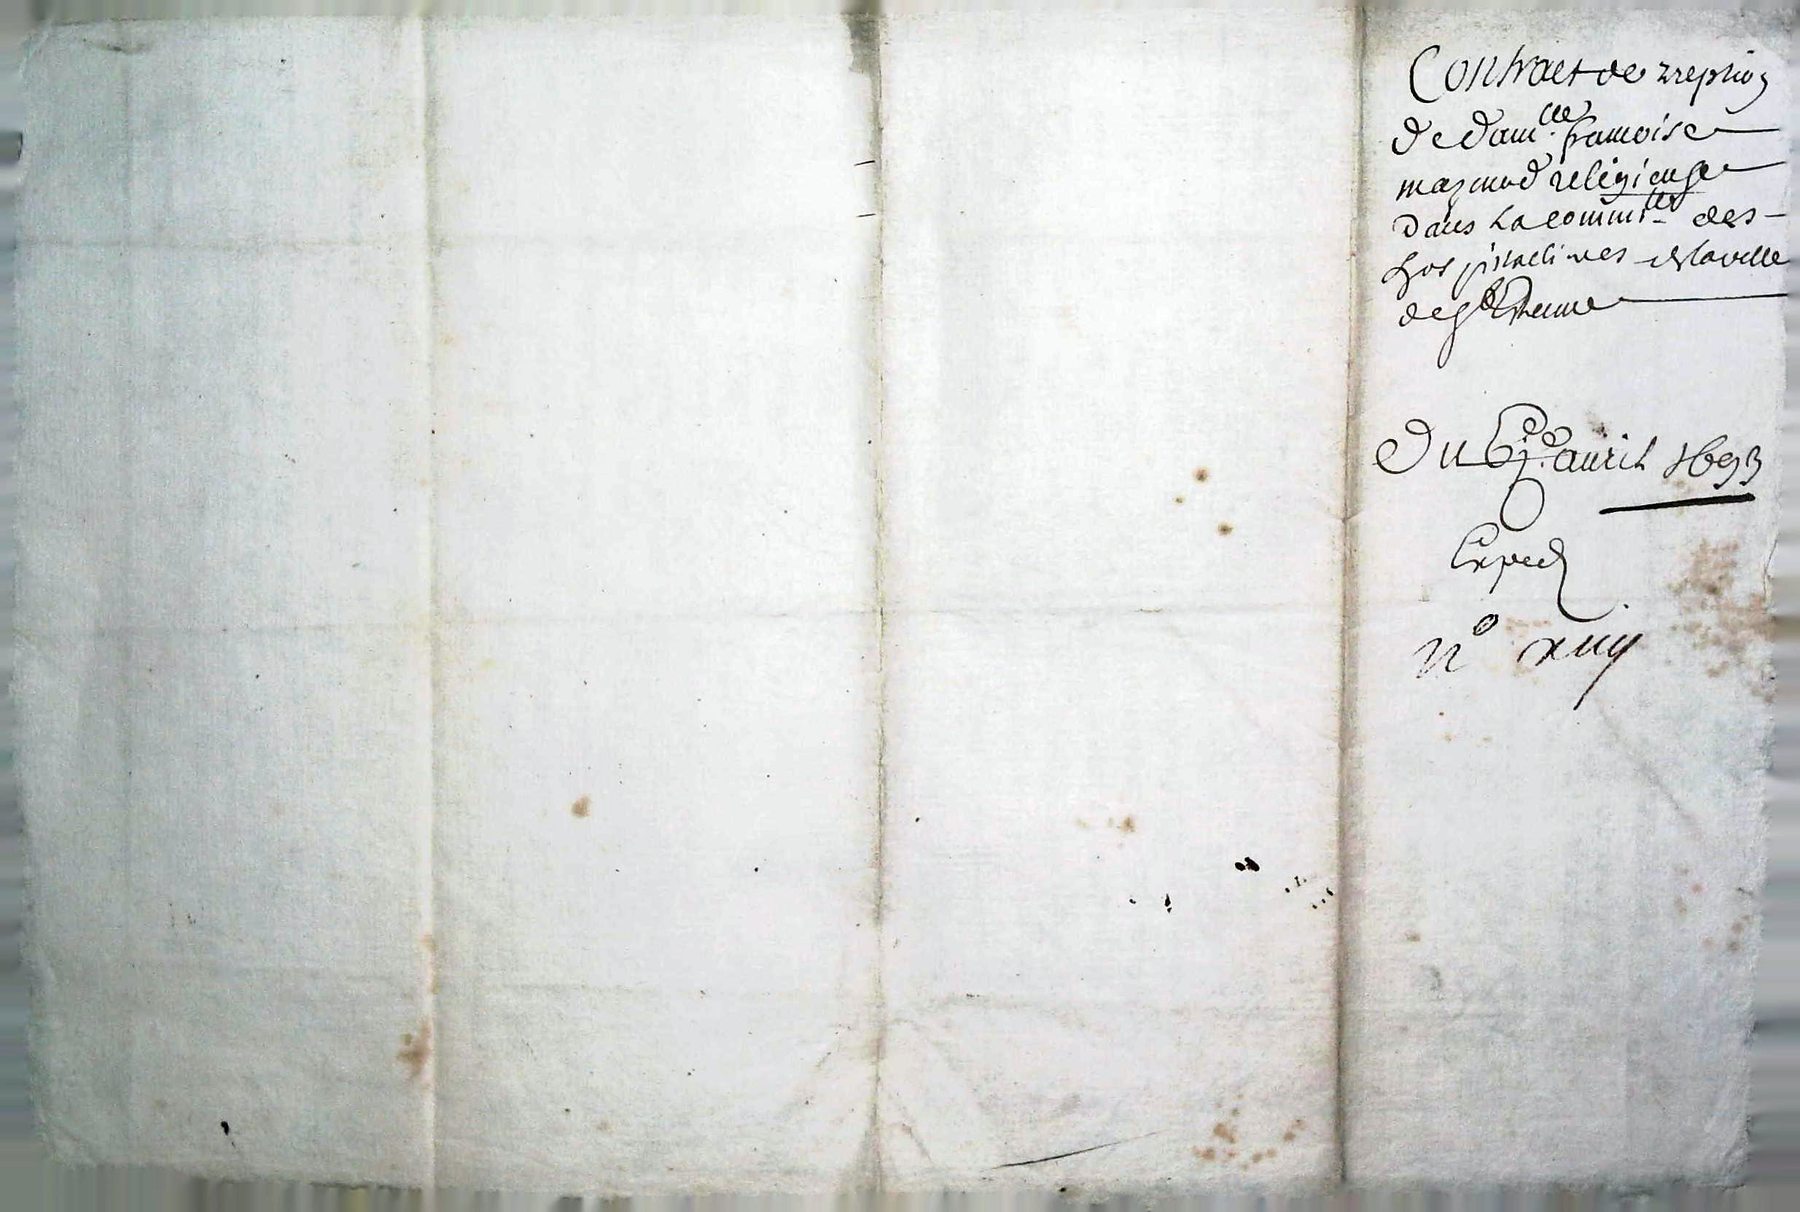 Contract de reption
de dam.lle francoise
maznod religieuse
dans La commu.té des
hospitaelieres de la ville
de st Estienne
Du 6j.e auril 1693
Exped
n° xiiij